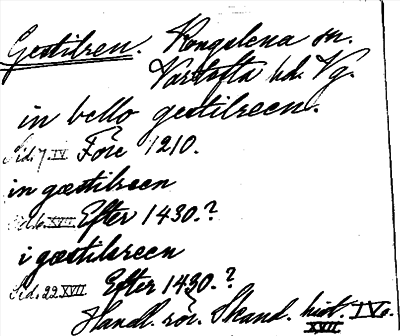 Gestilren. Kongslena sn.
Vartofta hd. Vg.
in bello gestilreen.
Sid. 7. IV. Före 1210.
in gæstilreen
Sid. 6. XVII. Efter 1430.?
i gæstilsreen
Sid. 22 XVII. Efter 1430.?
Handl. rör. Skand. hist. IV.
XVII